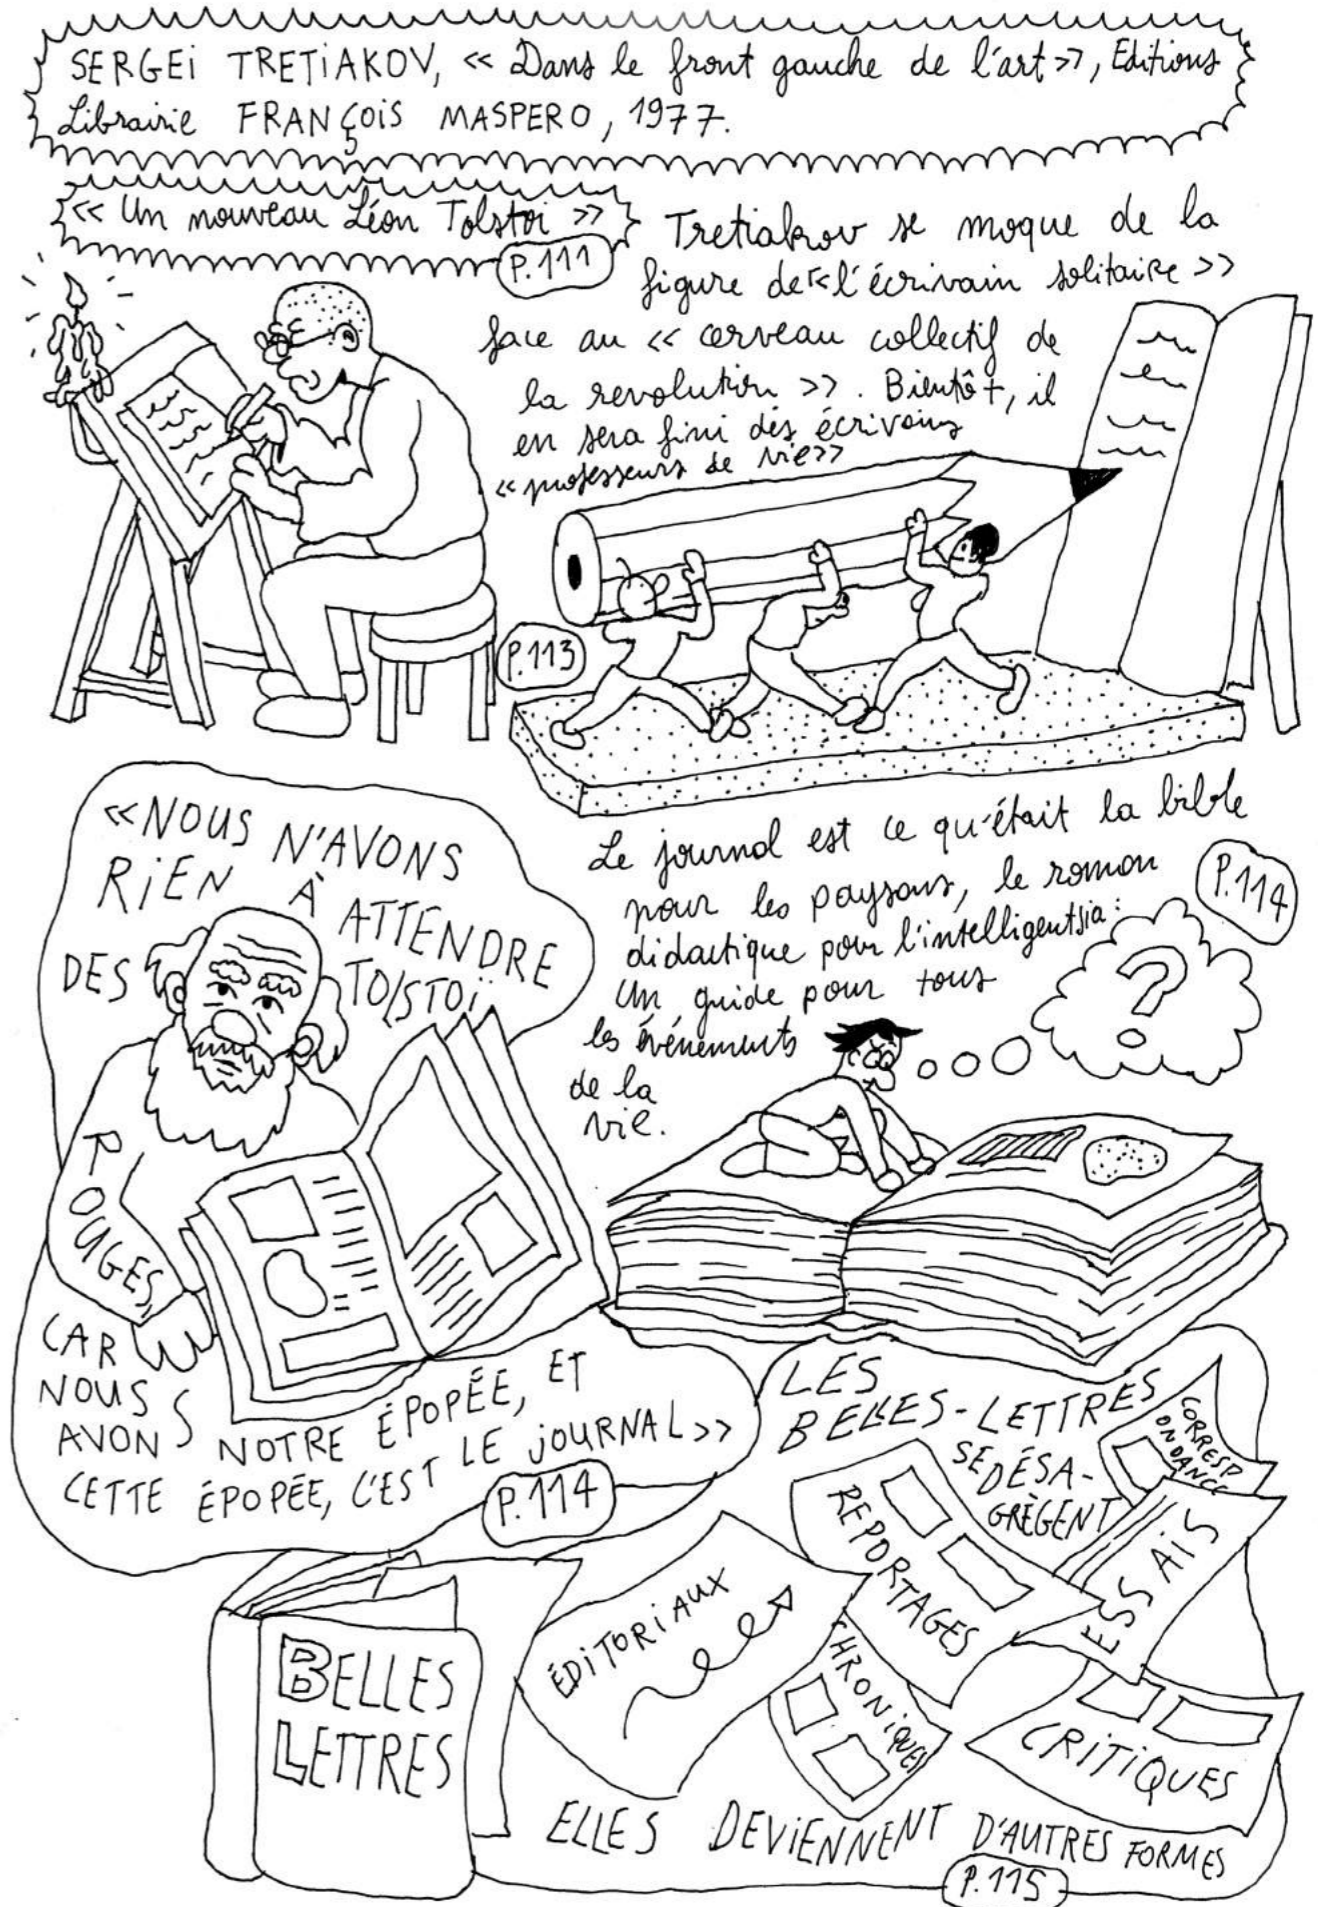 SERGEi TRETiAKOV, << Dans le front gauche de l'art >>, Editions
Librairie FRANÇOiS MASPERO, 1977.
<< Un nouveau Léon Tolstoi >>
P.111
Tretiakov se moque de la
figure de << l'écrivain solitaire >>
face au << cerveau collectif de
la revolution >>. Bientôt, il
en sera fini des écrivains
<< professeurs de vie >>
P.113
<< NOUS N'AVONS
RiEN À ATTENDRE
DES TOLSTOÏ
ROUGES,
CAR
NOUS
AVONS NOTRE ÉPOPÉE, ET
CETTE ÉPOPÉE, C'EST LE JOURNAL >>
P.114
Le journal est ce qu'était la bible
pour les paysans, le roman
didactique pour l'intelligentsia :
Un guide pour tous
les événements
de la
vie.
P.114
?
LES
BELLES-LETTRES
SE DÉSA-
GRÈGENT
CORRESP
ONDANCE
ESSAiS
REPORTAGES
ÉDiTORiAUX
CHRONiQUES
CRiTiQUES
BELLES
LETTRES
ELLES DEViENNENT D'AUTRES FORMES
P.115